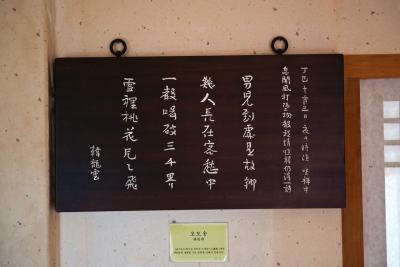 丁巳十二月三日夜十時頃坐禪中
忽聞風打墜物聲疑情頓釋仍得一詩
男兒到處是故鄉
幾人長在客愁中
一聲喝破三千界
雪裡桃花片々飛
韓龍雲
오도송
悟道頌